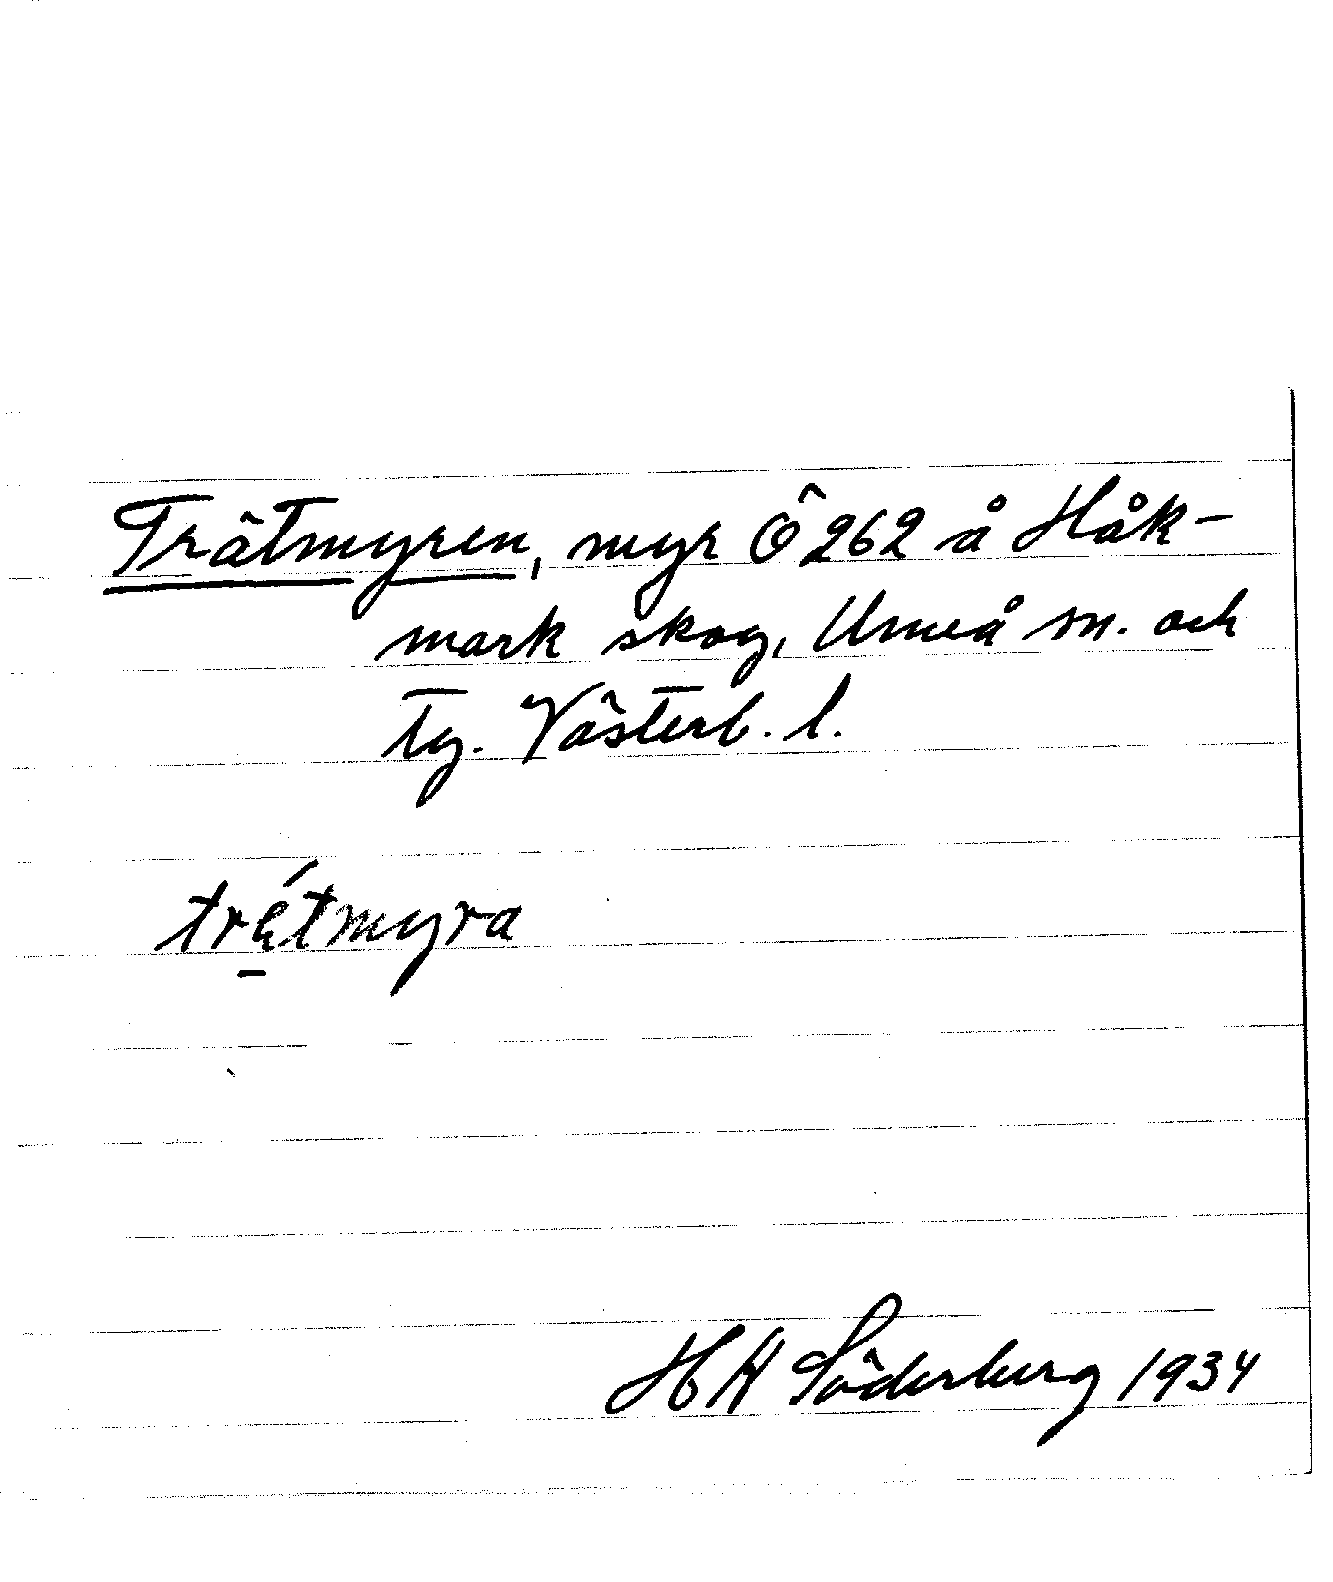 Trätmyren, myr Ö 262 å Håk-
mark skog, Umeå sn. och
tg. Västerb. l.
trétmyra
HH Söderberg 1934